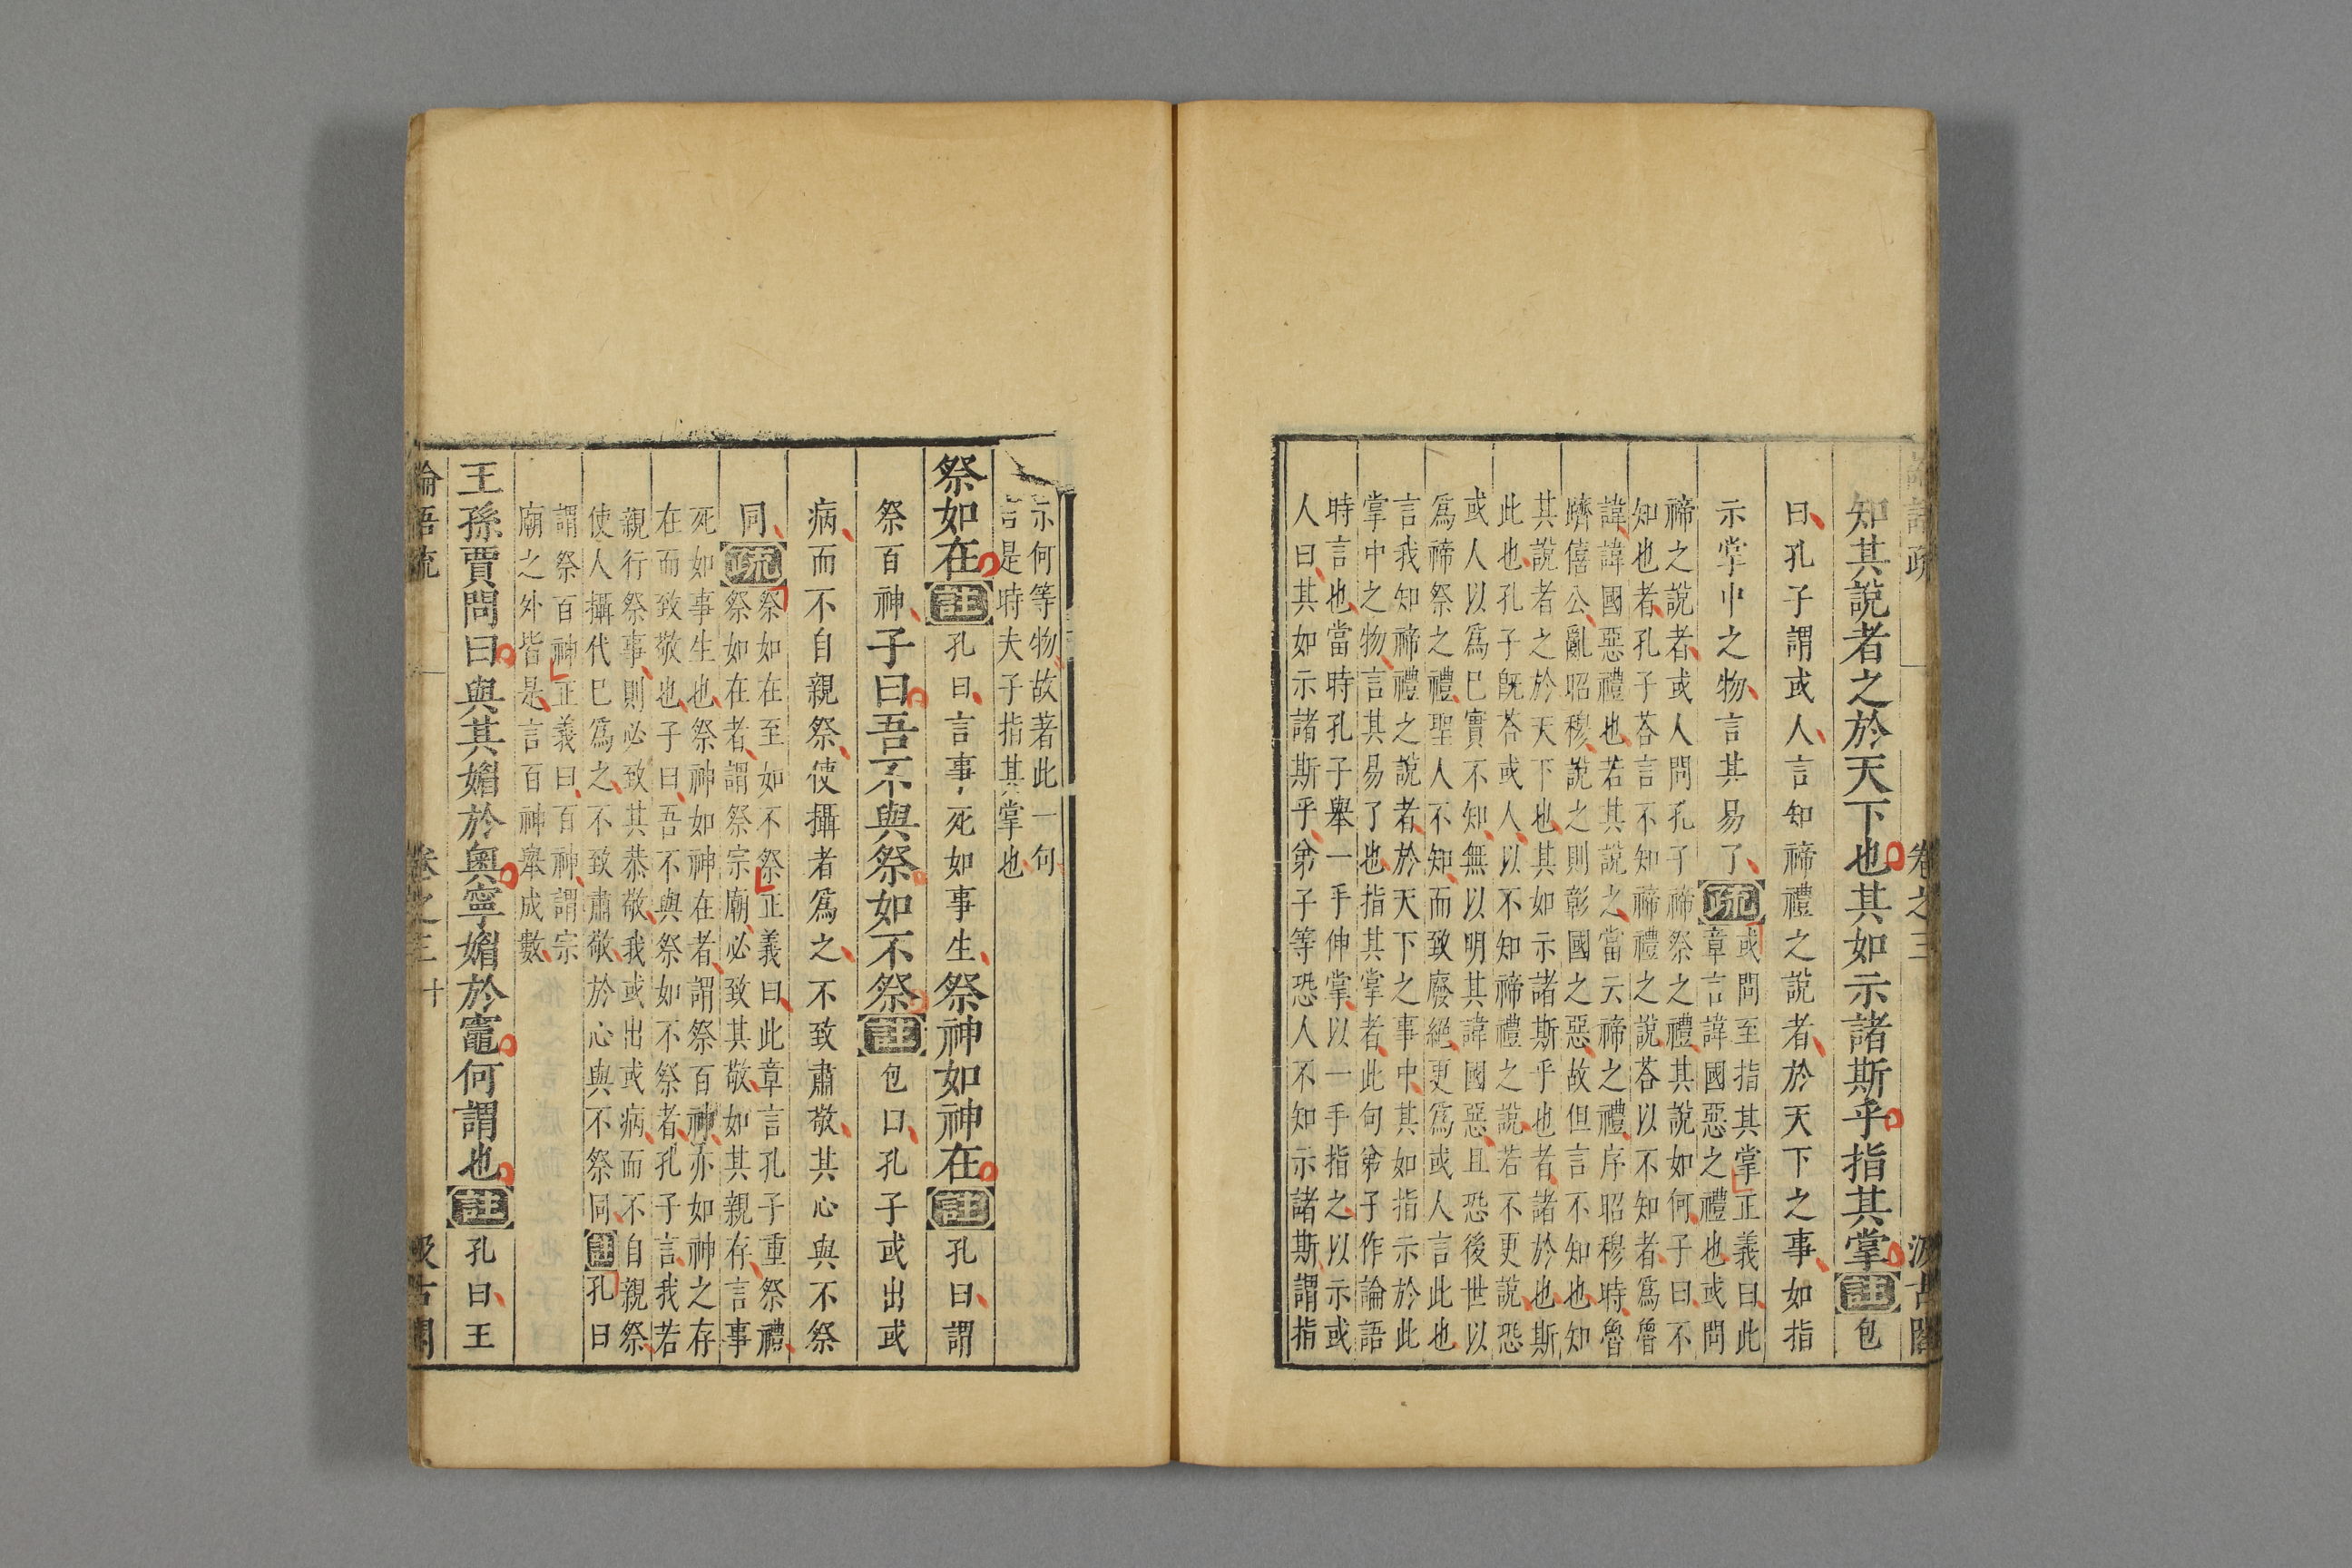 知其說者之於天下也其如示諸斯乎指其掌註包
曰孔子謂或人言知禘禮之說者於天下之事如指
示掌中之物言其易了疏
或問至指其掌正義曰此
章言諱國惡之禮也或問
禘之說者或人問孔子禘祭之禮其說如何子曰不
知也者孔子荅言不知禘禮之說荅以不知者爲魯
諱諱國惡禮也若其說之當云禘之禮序昭穆時魯
躋僖公亂昭穆說之則彰國之惡故但言不知也知
其說者之於天下也其如示諸斯乎也者諸於也斯
此也孔子旣荅或人以不知禘禮之說若不更說恐
或人以爲已實不知無以明其諱國惡且恐後世以
爲禘祭之禮聖人不知而致廢絕更爲或人言此也
言我知禘禮之說者於天下之事中其如指示於此
掌中之物言其易了也指其掌者此句弟子作論語
時言也當時孔子舉一手伸掌以一手指之以示或
人曰其如示諸斯乎弟子等恐人不知示諸斯謂指
示何等物故著此一句
言是時夫子指其掌也
祭如在註孔曰言事死如事生祭神如神在註孔曰謂
祭百神子曰吾不與祭如不祭註包曰孔子或出或
病而不自親祭使攝者爲之不致肅敬其心與不祭
同疏
祭如在至如不祭正義曰此章言孔子重祭禮
祭如在者謂祭宗廟必致其敬如其親存言事
死如事生也祭神如神在者謂祭百神亦如神之存
在而致敬也子曰吾不與祭如不祭者孔子言我若
親行祭事則必致其恭敬我或出或病而不自親祭
使人攝代已爲之不致肅敬於心與不祭同註孔曰
謂祭百神正義曰百神謂宗
廟之外皆是言百神舉成數
王孫賈問曰與其媚於奧寧媚於竈何謂也註孔曰王
論語疏 卷之三 十 汲古閣